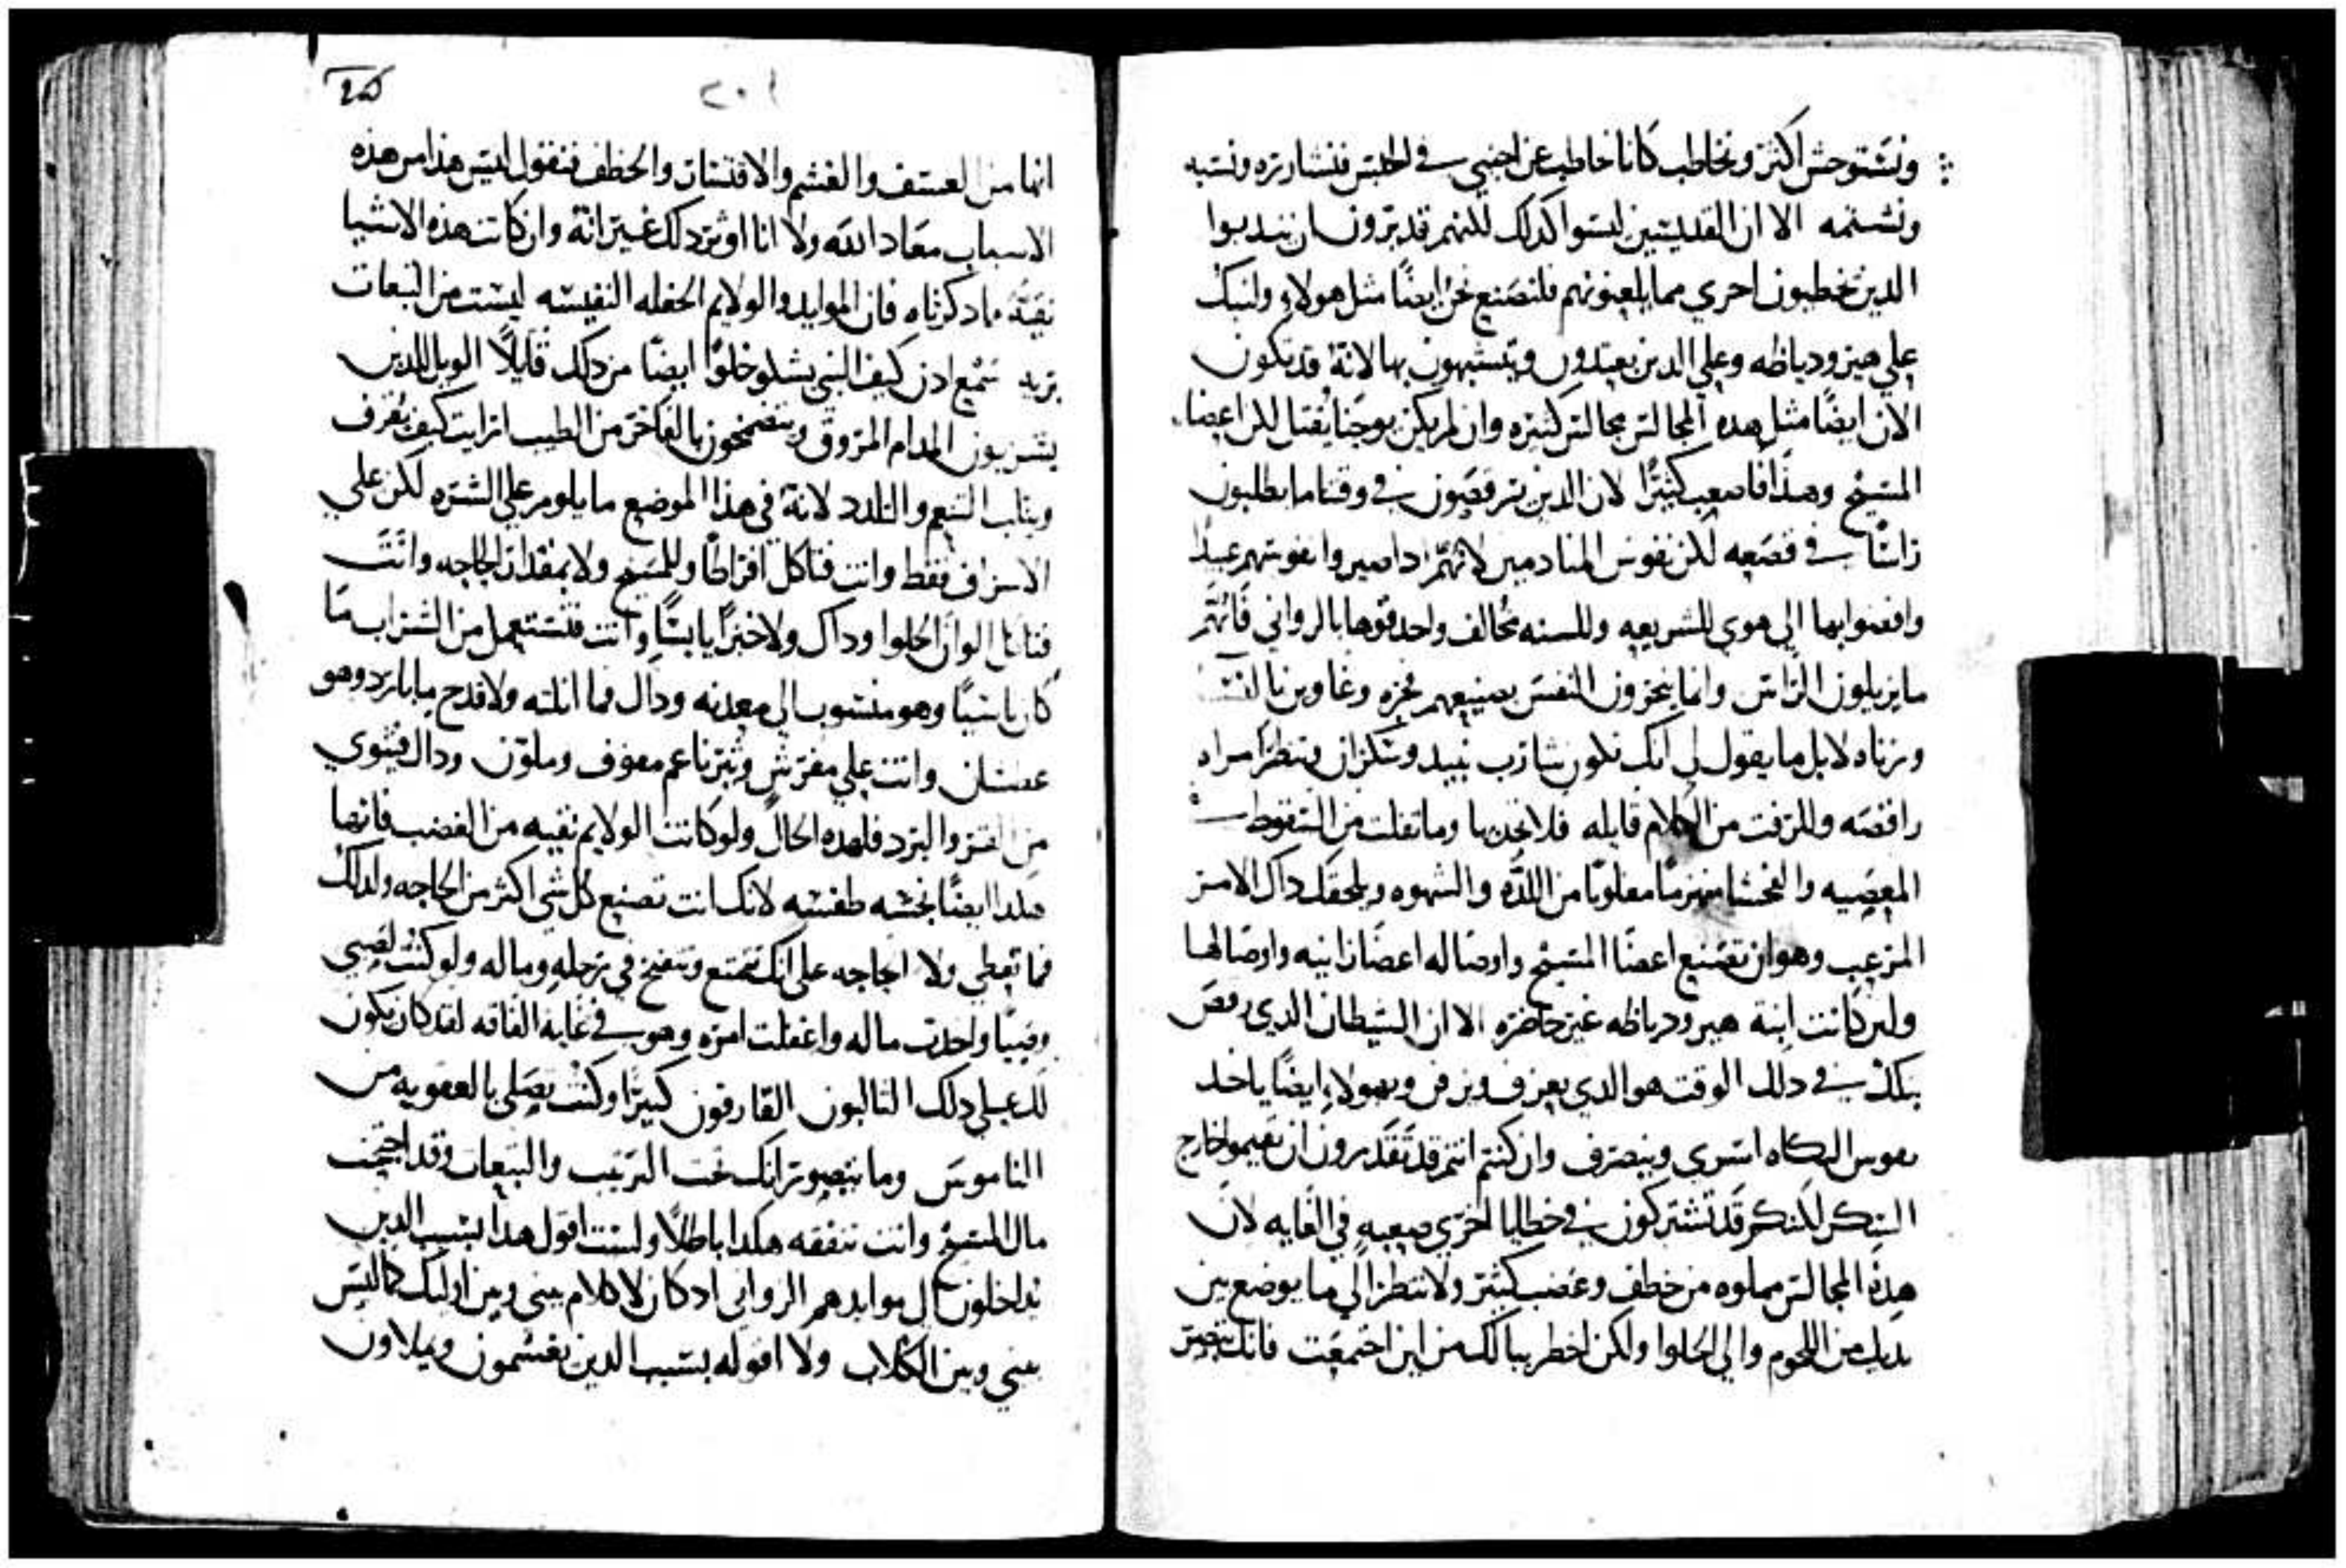 ونستوحش اكثر ونخاطب كانا نخاطب عن اجنبي في الحبس فنشارره ونسبه
ونشتمه الا ان القديسين ليسوا كدلك للنهم قد يرون ان يندبوا
الدين يخطيون احري مما يلعنونهم فلنصنع نحن ايضًا مثل هولاء ولنبك
علي هيرودياظه وعلي الدين يعتدون ويتشبهون بها لانه قد تكون
الان ايضًا مثل هده المجالس مجالس كثيره وان لم يكن يوحنا يقتل لكن اعضا
المسيح وهذا فاصعب كثيرًا لان الدين يرقصون في وقتنا ما يطلبون
راسًا في قصعه لكن نفوس المنادمين لانهم ادا صيروا نفوسهم عبيدًا
وافضوا بها الي هوي للشريعه وللسنه مخالف واحدقوها بالرواني فانهم
ما يزيلون الراس وانما ينحرون النفس بصنيعهم فجره وغاوين
وزناه لا بل ما يقول لي انك تكون شارب نبيد وسكران وتنظر امراه
راقصه وللزفت من الكلام قايله فلا تجدبها وما تفلت من السقوط
المعصيه والفحشا منهزمًا مغلوبًا من اللده والشهوه ويلحقك داك الامر
المرعب وهو ان تصنع اعضا المسيح واوصاله اعضا زانيه واوصالها
ولين كانت ابنة هيرودياظه غير حاضره الا ان الشيطان الدي رقص
بتلك في دلك الوقت هو الدي يعزف ويزفن وبهولاء ايضًا ياخد
نفوس المتكاه اسري وينصرف وان كنتم انتم قد تقدرون ان تقيموا خارج
السكر لكنكم قد تشتركون في خطايا اخري صعبه في الغايه لان
هذه المجالس مملوه من خطف وغصب كثير ولا تنظر الي ما يوضع بين
يديك من اللحوم والي الحلوا ولكن اخطر ببالك من اين اجتمعت فانك تبصر
٢٠١
انها من العسف والغشم والافتتان والخطف فتقول اليس هذا من هذه
الاسباب معاد الله ولا انا اوثر دلك غير انه وان كانت هذه الاشيا
نقية مما دكرناه فان الموايد والولايم الحفله النفيسه ليست من التبعات
بريه تسمع ادن كيف النبي يشلو خلوًا ايضًا من دلك قايلًا الويل للدين
يشربون المدام المروق ويتضمخون بالفاخر من الطيب ارايت كيف يقرف
ويثلب التنعم والتلدد لانه في هذا الموضع ما يلوم علي الشره لكن علي
الاسراف فقط وانت فتاكل افراطًا وللمسيح ولا بمقدار الحاجه وانت
فتاكل الوان الحلوا وداك ولا خبزًا يابسًا وانت فتستعمل من الشراب ما
كان ثاسيًا وهو منسوب الي معدنه وداك فما انلته ولا قدح ما بارد وهو
عطشان وانت علي مفرش وثير ناعم مفوف وملون وداك فيتوي
من القر والبرد فلهده الحال ولو كانت الولايم نقيه من الغصب فانها
هكدا ايضًا نجسه طفسه لانك انت تصنع كل شي اكثر من الحاجه ولداك
فما تعطي ولا الحاجه علي انك تتمتع وتتفنخ في رحله وماله ولو كنت لصبي
وصيًا واخدت ماله واغفلت امره وهو في غايه الفاقه لقد كان يكون
لك علي دلك الثالبون القارفون كثيرًا وكنت تصلي بالعقوبه من
الناموس وما تتصور انك تحت الترتيب والتبعات وقد احتجنت
مال المسيح وانت تنفقه هكدا باطلًا ولست اقول هدا بسبب الدين
يدخلون الي موايدهم الزواني اد كان لا كلام بيني وبين اوليك كما ليس
بيني وبين الكلاب ولا اقوله بسبب الدين يغشمون ويملاون